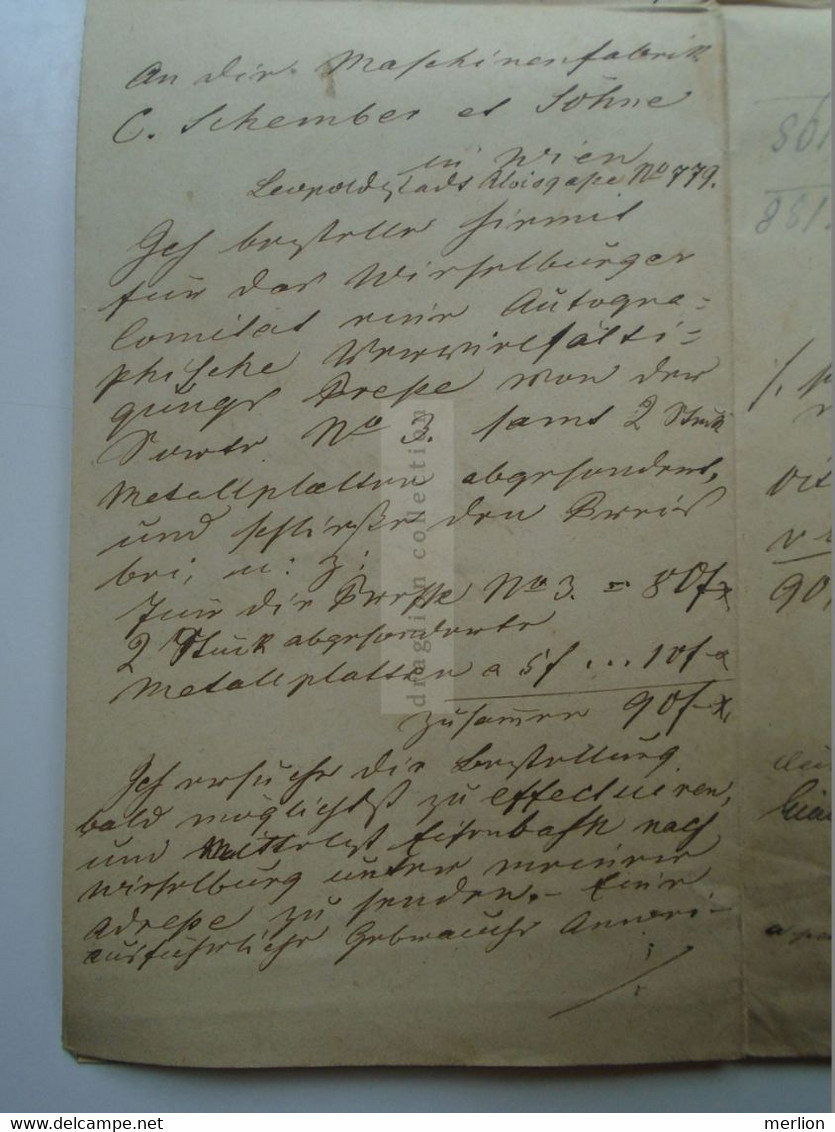 An die Maschinenfabrik
C. Schember et Söhne
in Wien
Leopoldstadt Kloisgaße No 779.
Ich bestelle hiemit
für das Wieselburger
Comitat eine Autogra=
phische Vervielfälti=
gungs Preße von der
Sorte No 3. samt 2 Stück
Metallplatten abgesondert,
und schließe den Preis
bei, u: z:
Für die Presse No 3. = 80f-x
2 Stück abgesonderte
Metallplatten a 5f ... 10f-x
zusammen 90f-x.
Ich ersuche die Bestellung
bald möglichst zu effectuiren,
und Mittelst Eisenbahn nach
Wieselburg unter meiner
Adreße zu senden. - Eine
ausführliche Gebrauchs Anwei-
90
dragdian collection
delcampe.net
merlion